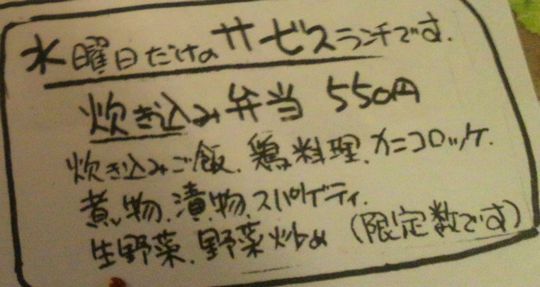 水曜日だけのサービスランチです.
炊き込み弁当 550円
炊き込みご飯、鶏料理、カニコロッケ.
煮物、漬物、スパゲティ.
生野菜、野菜炒め (限定数です)